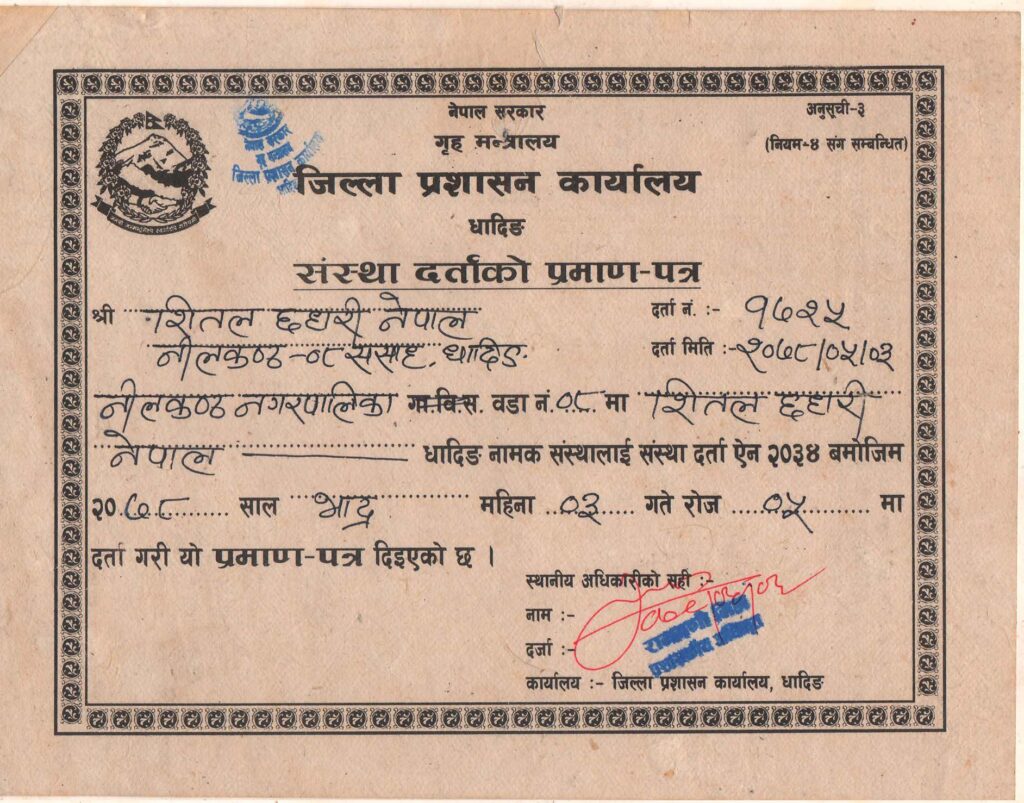 नेपाल सरकार
अनुसूची-३
गृह मन्त्रालय
(नियम-४ संग सम्बन्धित)
जिल्ला प्रशासन कार्यालय
धादिङ
संस्था दर्ताको प्रमाण-पत्र
श्री शितल छहारी नेपाल
दर्ता नं. :- १७२५
नीलकण्ठ -०८ ससाह, धादिङ
दर्ता मिति :- २०७८/०५/०३
नीलकण्ठ नगरपालिका गा.वि.स. वडा नं. ०८ मा शितल छहारी
नेपाल धादिङ नामक संस्थालाई संस्था दर्ता ऐन २०३४ बमोजिम
२०७८ साल भाद्र महिना ०३ गते रोज ०५ मा
दर्ता गरी यो प्रमाण-पत्र दिइएको छ ।
स्थानीय अधिकारीको सही :-
नाम :-
दर्जा :-
कार्यालय :- जिल्ला प्रशासन कार्यालय, धादिङ